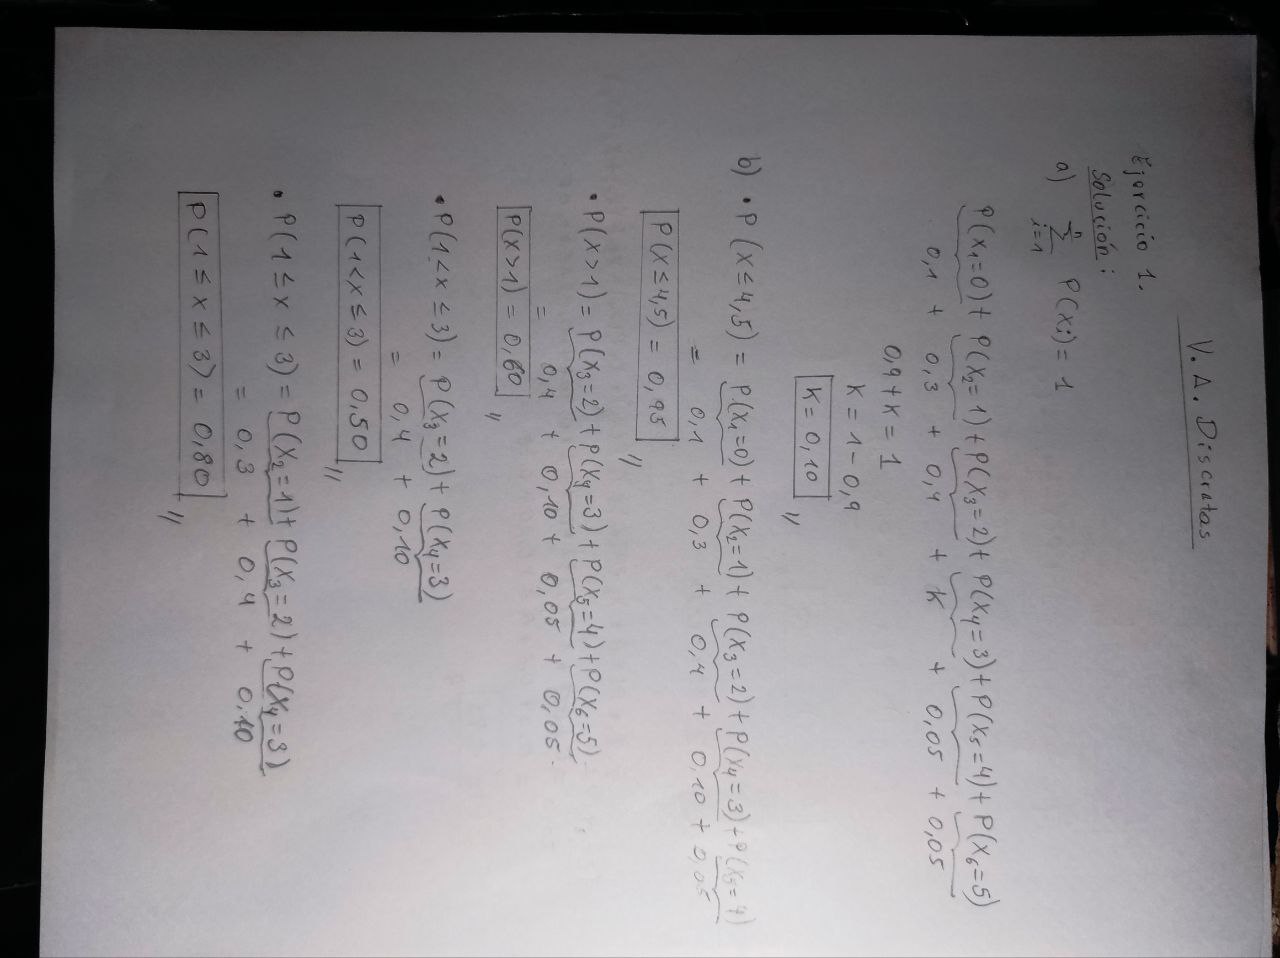 V. A. Discretas
Ejercicio 1.
Solución:
a) n∑i=1 P(xi) = 1
P(x₁=0) + P(x₂=1) + P(x₃=2) + P(x₄=3) + P(x₅=4) + P(x₆=5)
0,1 + 0,3 + 0,4 + K + 0,05 + 0,05
0,9 + K = 1
K = 1 - 0,9
K = 0,10 //
b) • P(x ≤ 4,5) = P(x₁=0) + P(x₂=1) + P(x₃=2) + P(x₄=3) + P(x₅=4)
= 0,1 + 0,3 + 0,4 + 0,10 + 0,05
P(x ≤ 4,5) = 0,95 //
• P(x > 1) = P(x₃=2) + P(x₄=3) + P(x₅=4) + P(x₆=5)
= 0,4 + 0,10 + 0,05 + 0,05
P(x > 1) = 0,60 //
• P(1 < x ≤ 3) = P(x₃=2) + P(x₄=3)
= 0,4 + 0,10
P(1 < x ≤ 3) = 0,50 //
• P(1 ≤ x ≤ 3) = P(x₂=1) + P(x₃=2) + P(x₄=3)
= 0,3 + 0,4 + 0,10
P(1 ≤ x ≤ 3) = 0,80 //